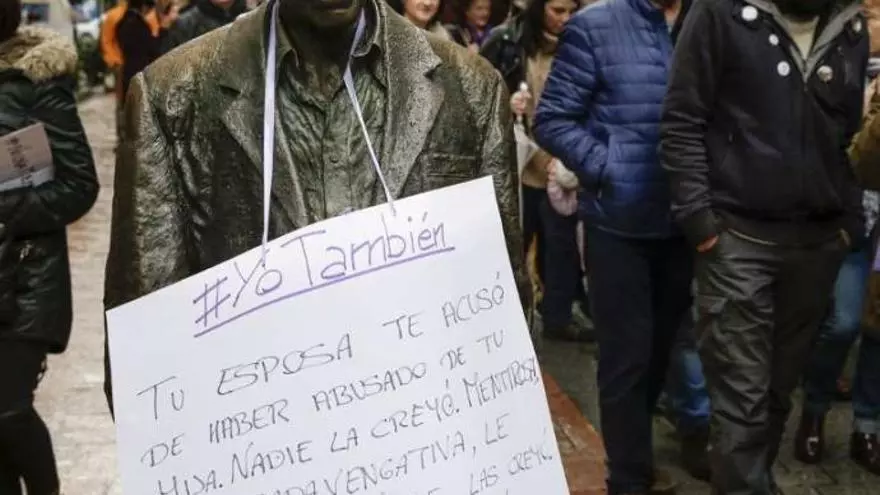 #Yo También
TU ESPOSA TE ACUSÓ
DE HABER ABUSADO DE TU
HIJA. NADIE LA CREYÓ. MENTIROSA,
VENGATIVA, LE
LAS CREYÓ.